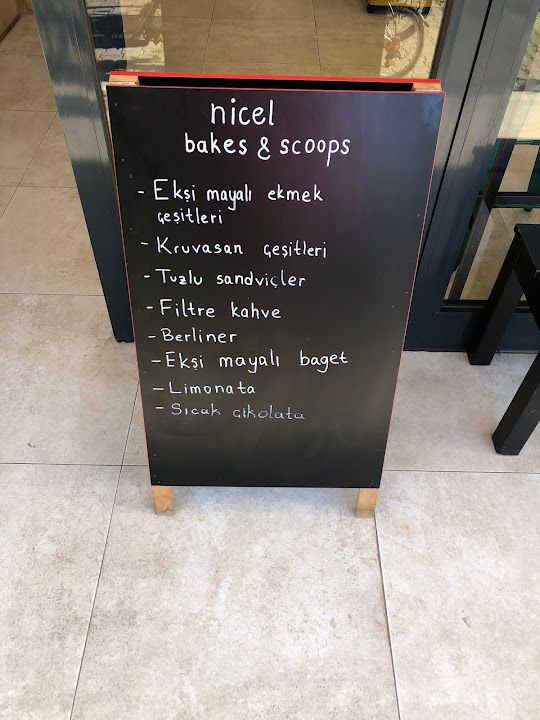 nicel
bakes & scoops
- Ekşi mayalı ekmek
çeşitleri
- Kruvasan çeşitleri
- Tuzlu sandviçler
- Filtre kahve
- Berliner
- Ekşi mayalı baget
- Limonata
- Sıcak çikolata